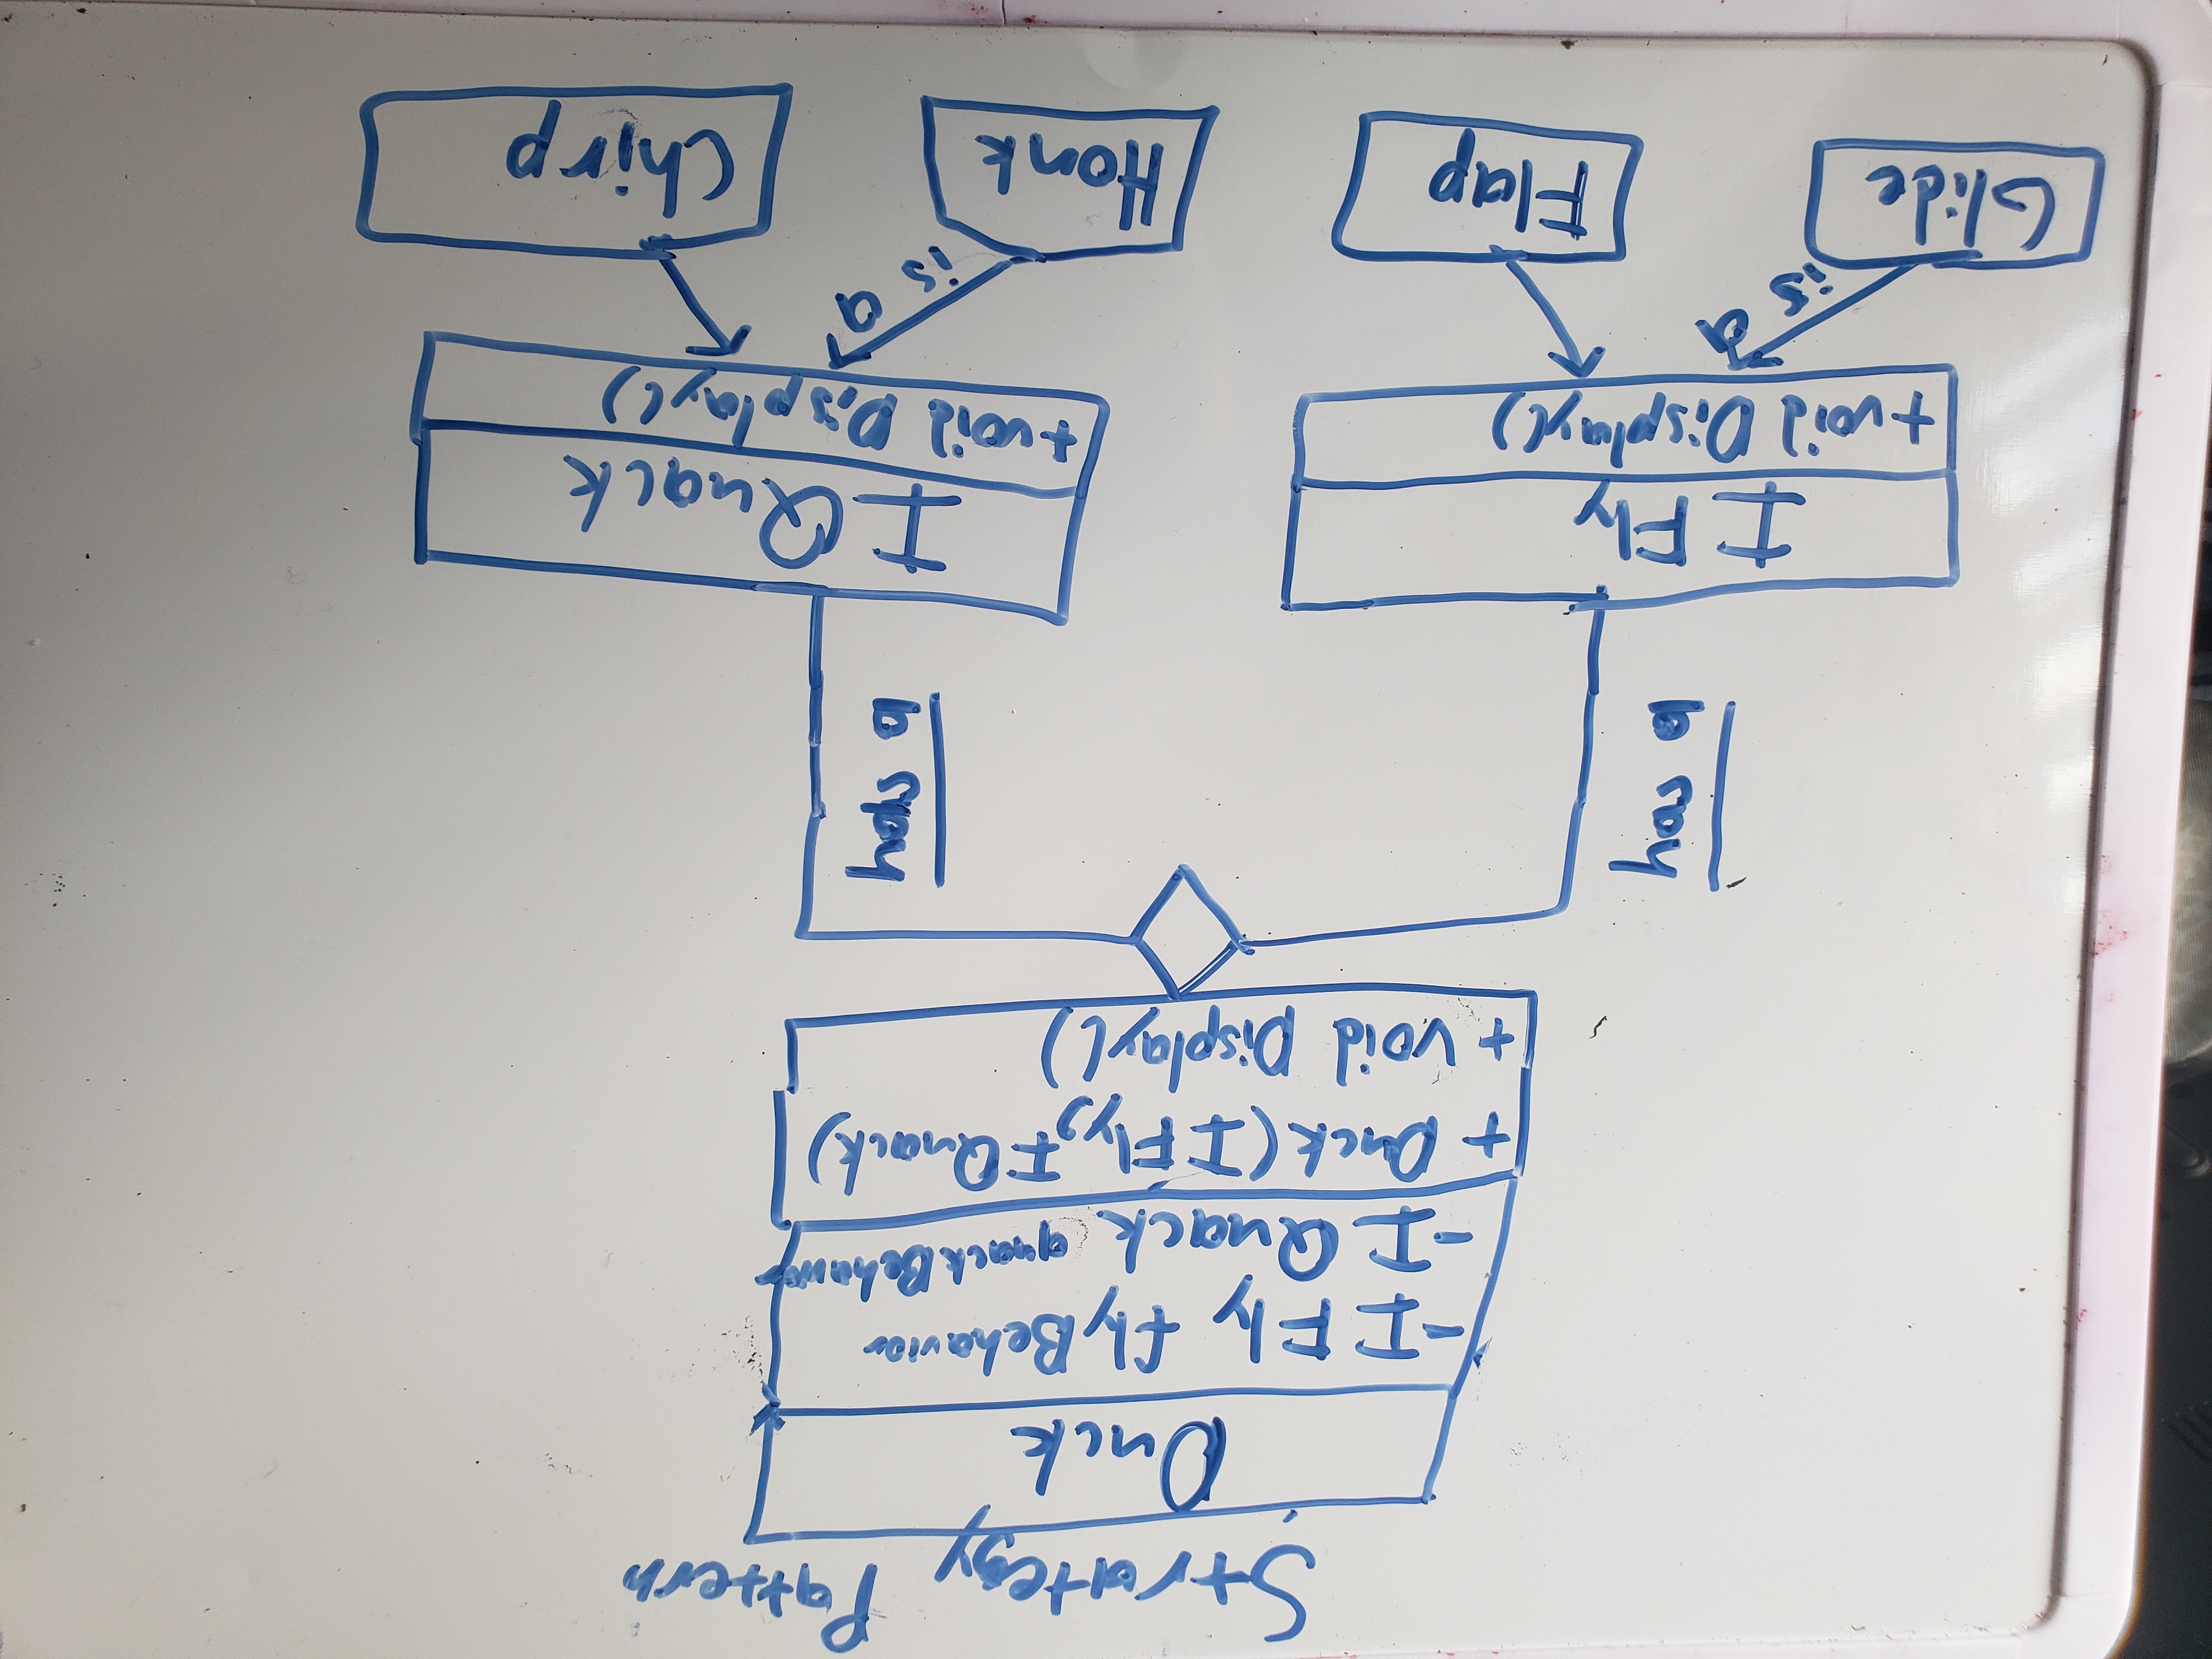 Strategy Pattern
Duck
- I Fly flyBehavior
- I Quack quackBehavior
+ Duck(IFly, IQuack)
+ void Display()
has a
has a
I Fly
+void Display()
I Quack
+void Display()
is a
is a
Glide
Flap
Honk
Chirp